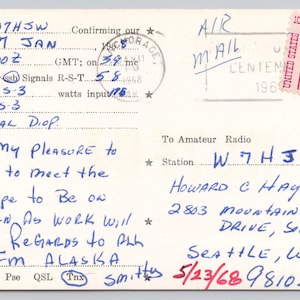 7HJW Confirming our
7 JAN 1968
0Z GMT; on 3.9 mc
ssb Signals R-S-T 58
S-3 watts input
S-3
AL Dip.
My PLEASURE to
to MEET the
pe to Be on
N, AS WORK Will
REGARDS to ALL
FM ALASKA
Pse QSL Tnx Smitty
ANCHORAGE,
1968
AIR
MAIL
CENTEN
196
UNITED STATES
To Amateur Radio
Station W7HJ
HOWARD C HAY
2803 MOUNTAIN
DRIVE, S
SEATTLE, W
5/23/68 9810